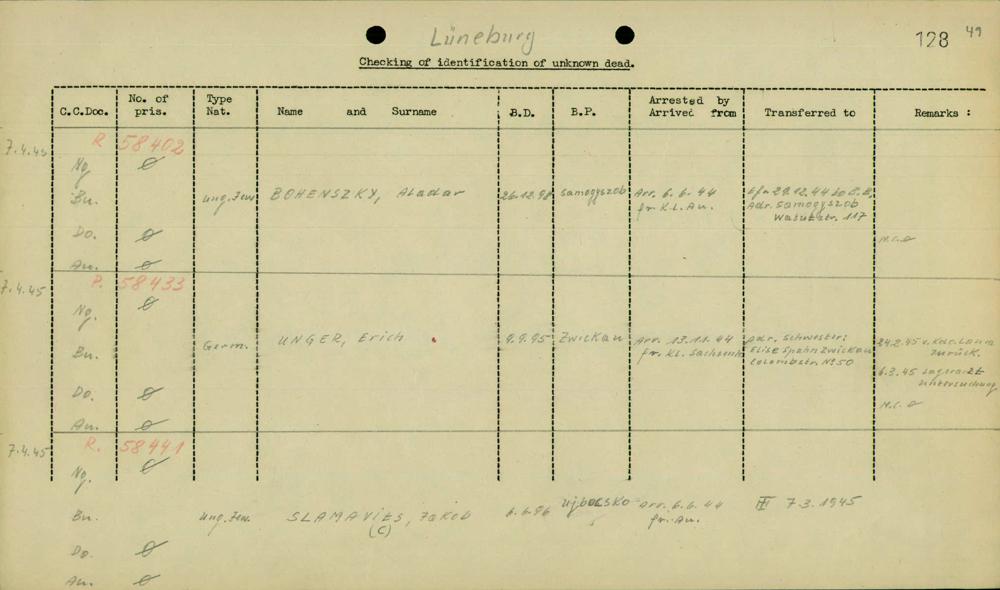 Lüneburg
128 49
Checking of identification of unknown dead.
C.C.Doc. No. of pris. Type Nat. Name and Surname B.D. B.P. Arrested by Arrived from Transferred to Remarks :
7.4.45 R 58402
Ng. ø
Bu. Ung. Jew. BOHENSZKY, Aladar 26.12.98 Samogyszob Arr. 6.6.44 fr. K.L. Au. 29.12.44 to B.B, Adr. Samogyszob 117
Do. ø
N.C. ø
Au. ø
7.4.45 R. 58433
Ng. ø
Bu. Germ. UNGER, Erich 9.9.95 Zwickau Arr. 13.11.44 fr. KL. Sachsenh Adr. Schwester: Elise Spahn Zwickau Colombstr. No 50 24.2.45 v. Kdo. Laura zurück.
6.3.45 Lagerarzt untersuchung
Do. ø
N.C. ø
Au. ø
7.4.45 R. 58441
Ng. ø
Bu. Ung. Jew. SLAMAVITS, Jakob 6.6.96 Arr. 6.6.44 fr. Au. III 7.3.1945
(C)
Do. ø
Au. ø